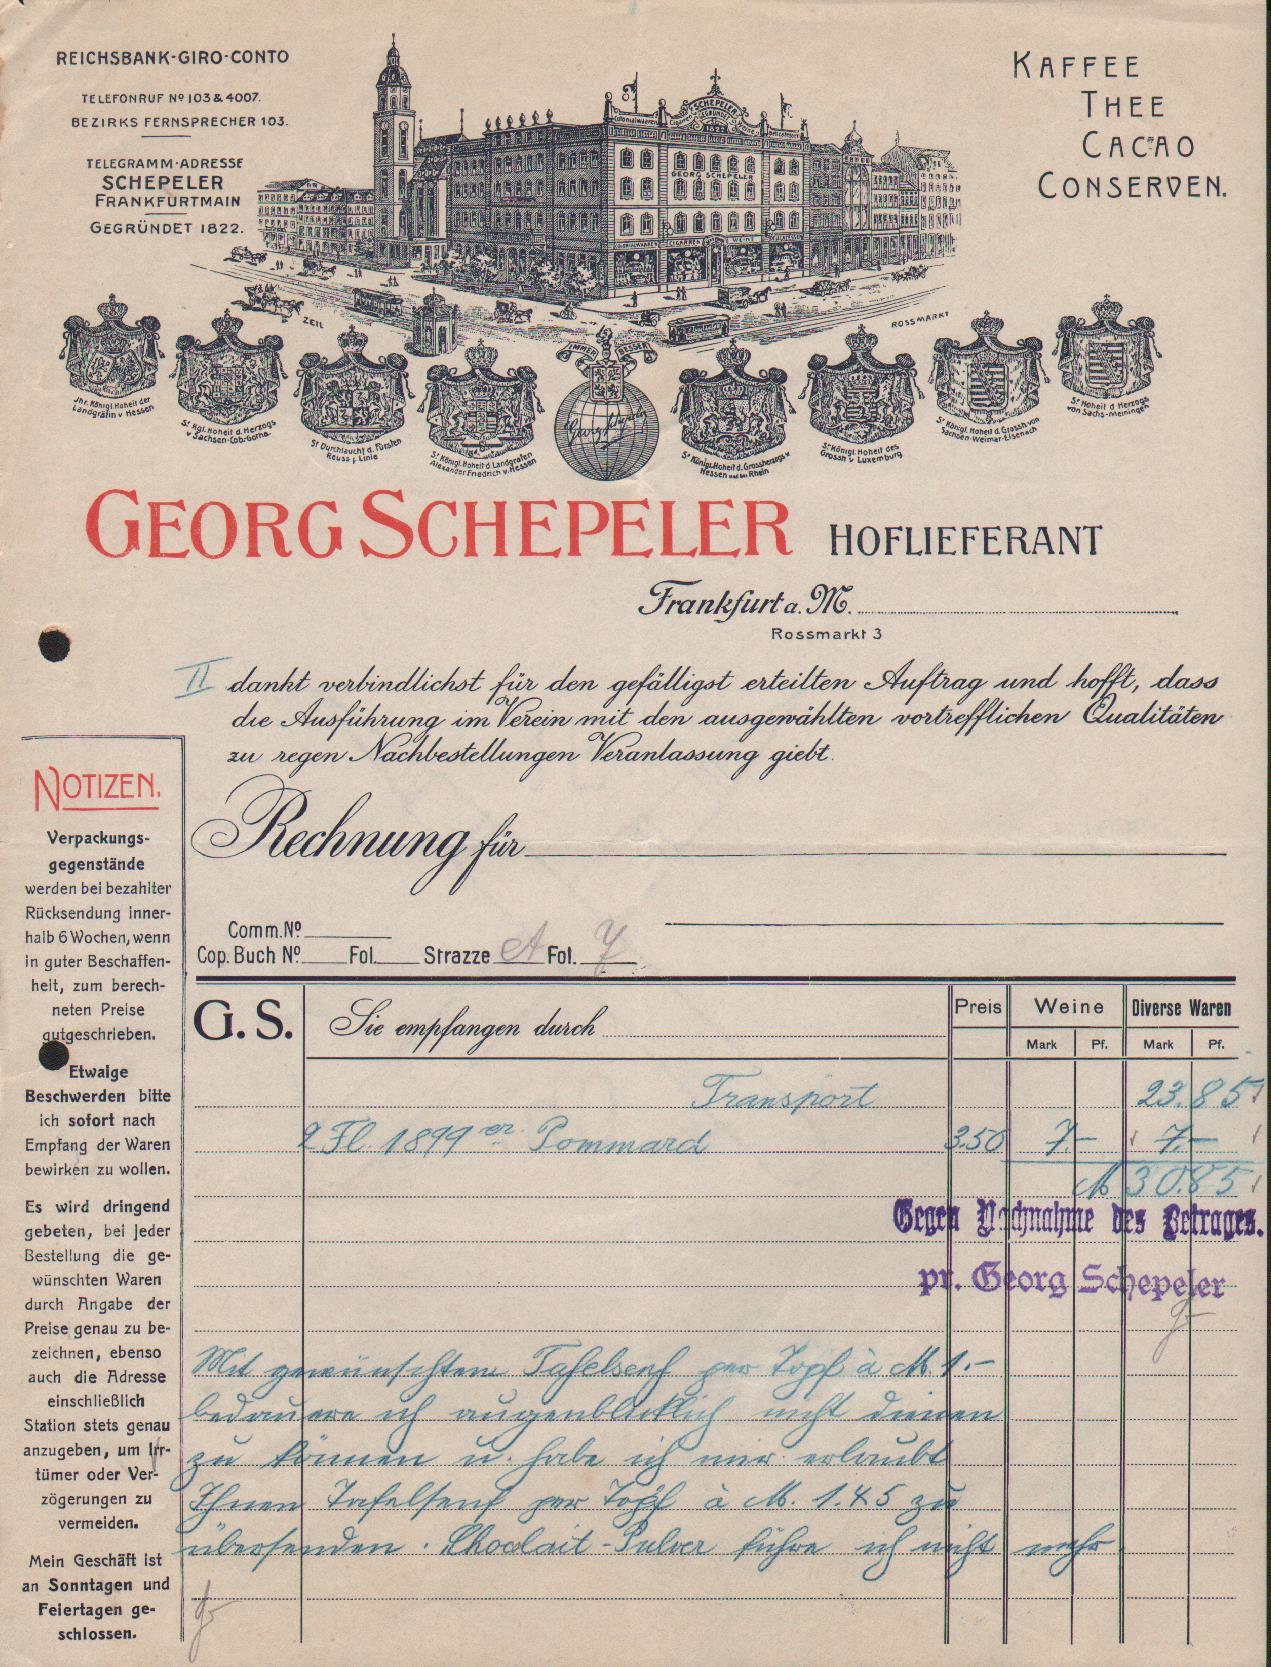 REICHSBANK-GIRO-CONTO
TELEFONRUF Nº 103 & 4007.
BEZIRKS FERNSPRECHER 103.
TELEGRAMM-ADRESSE
SCHEPELER
FRANKFURTMAIN
GEGRÜNDET 1822.
KAFFEE
THEE
CACAO
CONSERVEN.
SCHEPELER
GEGRÜNDET
1822
GEORG SCHEPELER
COLONIALWAAREN CIGARREN WEINE
ZEIL
ROSSMARKT
IMMER BESSER
Jhr. Königl. Hoheit der
Landgräfin v Hessen
Sr Kgl. Hoheit d. Herzogs
v Sachsen-Cob-Gotha.
Sr Durchlaucht d. Fürsten
Reuss j. Linie
Sr Königl. Hoheit d. Landgrafen
Alexander Friedrich v. Hessen
Georg Schepeler
Sr Königl. Hoheit d. Grossherzogs v
Hessen und bei Rhein
Sr Königl. Hoheit des
Grossh v Luxemburg
Sr Königl. Hoheit d. Grossh von
Sachsen-Weimar-Eisenach
Sr Hoheit d. Herzogs
von Sachs-Meiningen
GEORG SCHEPELER HOFLIEFERANT
Frankfurt a. M.
Rossmarkt 3
II dankt verbindlichst für den gefälligst erteilten Auftrag und hofft, dass
die Ausführung im Verein mit den ausgewählten vortrefflichen Qualitäten
zu regen Nachbestellungen Veranlassung giebt.
Rechnung für
Comm. Nº
Cop. Buch Nº Fol. Strazze A Fol. 7
NOTIZEN.
Verpackungs-
gegenstände
werden bei bezahlter
Rücksendung inner-
halb 6 Wochen, wenn
in guter Beschaffen-
heit, zum berech-
neten Preise
gutgeschrieben.
Etwaige
Beschwerden bitte
ich sofort nach
Empfang der Waren
bewirken zu wollen.
Es wird dringend
gebeten, bei jeder
Bestellung die ge-
wünschten Waren
durch Angabe der
Preise genau zu be-
zeichnen, ebenso
auch die Adresse
einschließlich
Station stets genau
anzugeben, um Irr-
tümer oder Ver-
zögerungen zu
vermeiden.
Mein Geschäft ist
an Sonntagen und
Feiertagen ge-
schlossen.
G. S. Sie empfangen durch Preis Weine Diverse Waren
Mark Pf. Mark Pf.
Transport 23.85
2 Fl. 1899er Pommard 3.50 7.– 7.–
M 30.85
Gegen Nachnahme des Betrages.
pr. Georg Schepeler
Mit gewünschtem Tafelsenf per Topf à M. 1.–
bedauere ich augenblicklich nicht dienen
zu können u. habe ich mir erlaubt
Ihnen Tafelsenf per Topf à M. 1.45 zu
übersenden. Chocolait-Pulver führe ich nicht mehr.